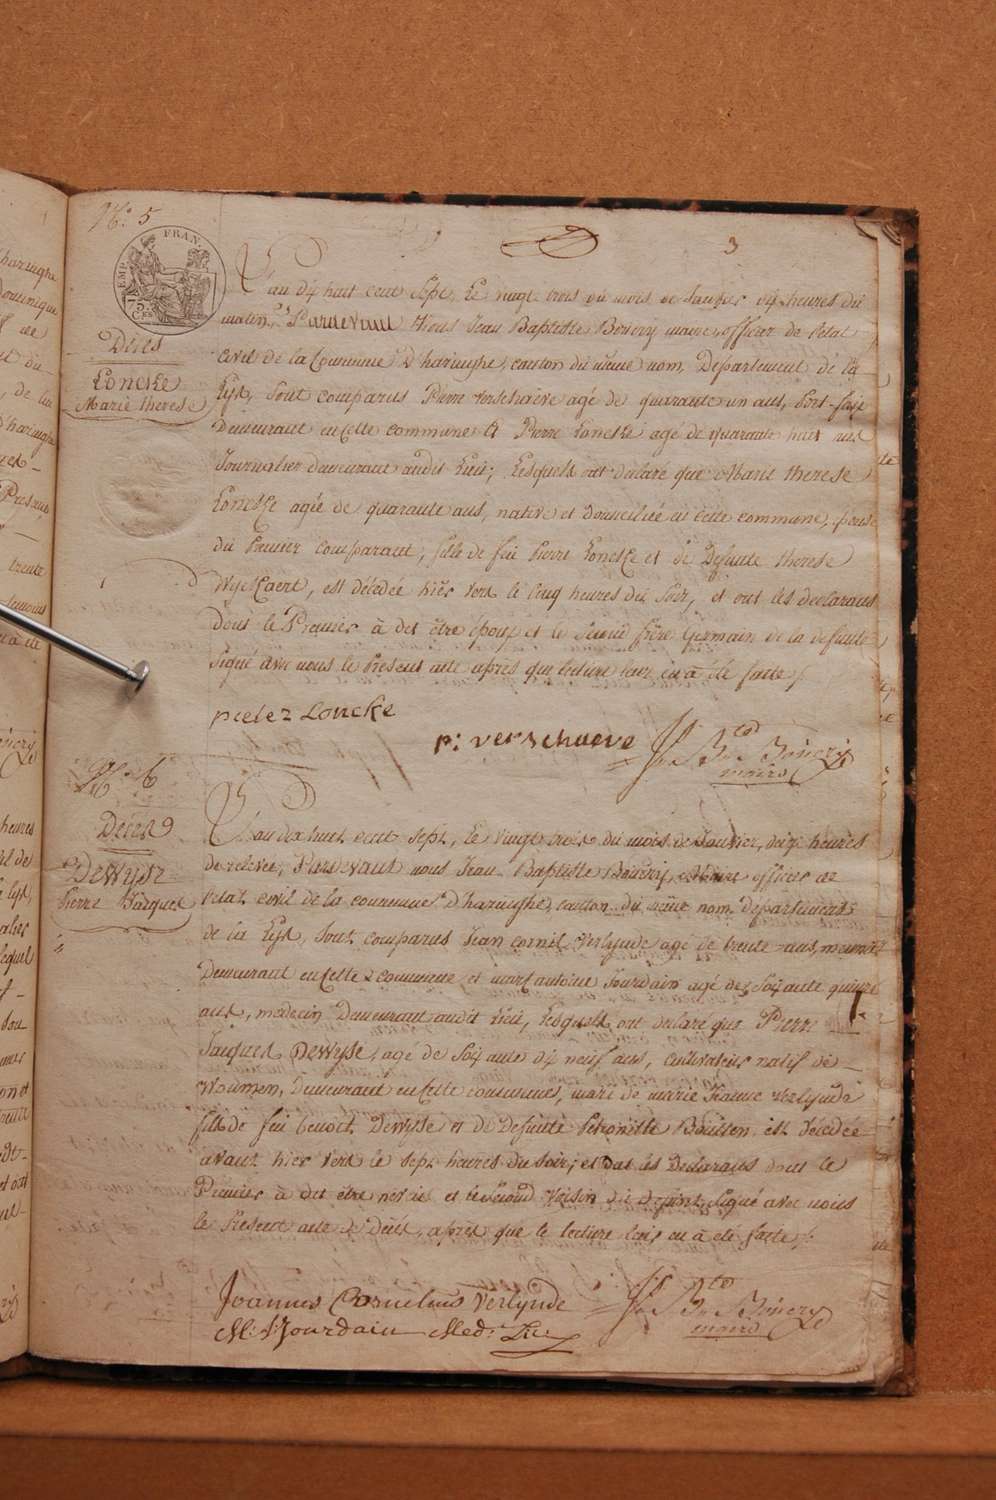 No. 5
3
EMP. FRAN.
75 Ces
Décès
Loncke
Marie therese
L'an dix huit cent Sept, Le vingt trois du mois de Janvier dix heures du
matin, Pardevant Nous Jean Baptiste Bouvry maire, officier de l'etat
Civil de la Commune D'haringhe, canton du même nom, Departement de la
Lys, Sont comparus Pierre verschaeve agé de quarante un ans,
Demeurant en cette commune & Pierre Loncke agé de quarante huit ans
Journalier demeurant audit Lieu; Lesquels ont déclaré que Marie therese
Loncke agée de quarante ans, native et domiciliée en cette commune, épouse
du Premier comparant, fille de feu Pierre Loncke et de Defunte therese
Wyckaert, est décédée hier vers le Cinq heures du soir, et ont les declarans
dont le Premier à dit être époux et le Second frère Germain de la defunte
Signé avec nous le Present acte après que lecture leur en à été faite /.
pieter Loncke
p: verschaeve
maire
No. 6
Décès
DeWysse
Pierre Jacques
L'an dix huit cent sept, Le vingt trois du mois de Janvier, deux heures
de relevée, Pardevant nous Jean Baptiste Bouvry, Maire officier de
l'etat civil de la commune D'haringhe, canton du même nom, departement
de la Lys, Sont comparus Jean Cornil Verlynde agé de trente ans,
Demeurant en cette commune et marc antoine Jourdain agé de Soixante quinze
ans, médecin Demeurant audit Lieu, Lesquels ont declaré que Pierre
Jacques DeWysse, agé de Soixante dix neuf ans, cultivateur natif de
Woumen, demeurant en cette commune, mari de marie Jeanne Verlynde
fils de feu benoit DeWysse et de Defunte Petronille Baillen est Décédé
avant hier vers le sept heures du soir; et ont les Declarans dont le
Premier à dit être neveu et le Second Voisin du defunt, Signé avec nous
le Present acte de décès, après que le lecture leur en à été faite /.
Joannes Cornelius Verlynde
M: Jourdain Med: Lic
maire